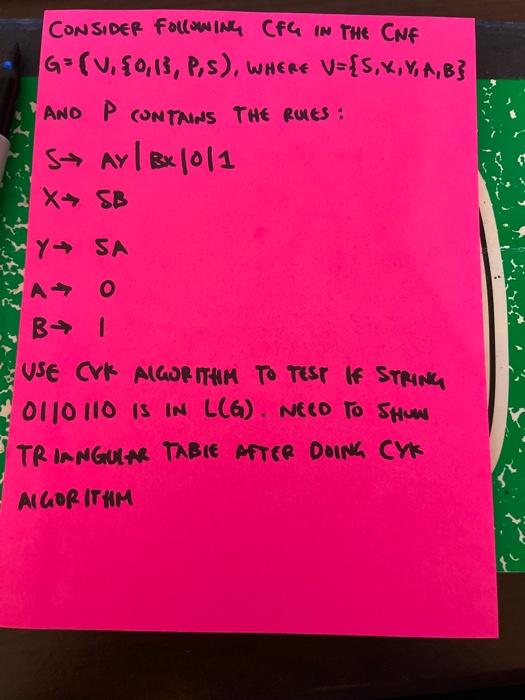 CONSIDER FOLLOWING CFG IN THE CNF
G=(V,{0,1},P,S), WHERE V={S,X,Y,A,B}
AND P CONTAINS THE RULES:
S→ AY|BX|0|1
X→ SB
Y→ SA
A→ 0
B→ 1
USE CYK ALGORITHM TO TEST IF STRING
0110110 IS IN L(G). NEED TO SHOW
TRIANGULAR TABLE AFTER DOING CYK
ALGORITHM